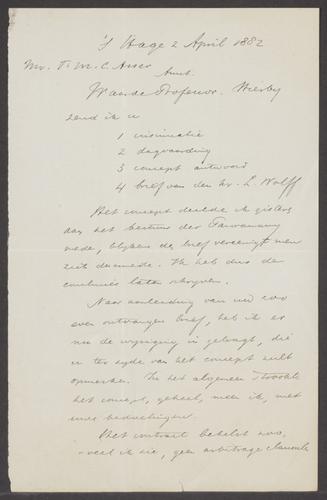 'S Hage 2 April 1882
Mr. T. M. C. Asser
Amst.
Waarde Professor. Hierbij
zend ik u
1
2 dagvaarding
3 concept antwoord
4 brief van den hr. L. Wolff
Het concept deelde ik gisteren
aan het bestuur der
mede, blijkens de brief vereenigt men
zich daarmede. Ik heb dus de
conclusie laten schrijven.
Naar aanleiding van uw zoo
even ontvangen brief, heb ik er
nu de wijziging in gelegd, die
u ter zijde van het concept zult
opmerken. In het algemeen strookte
het concept, geheel, meen ik, met
uwe bedoelingen.
Het contract behelst zoo,
veel ik zie, geen arbitrage clausule